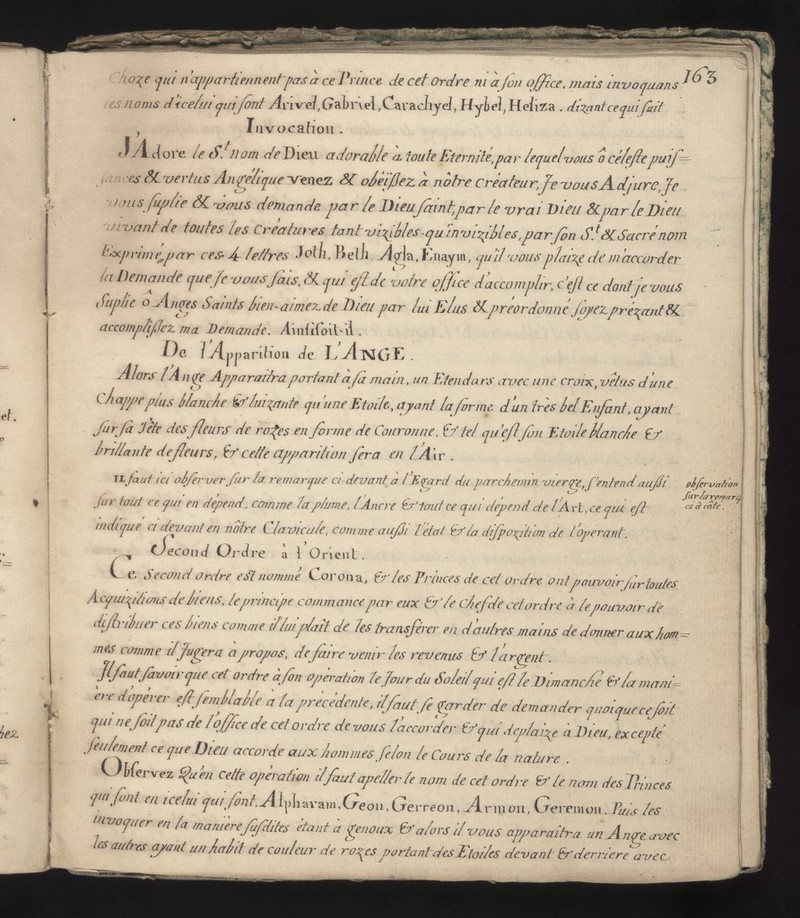 163
Choze qui n'appartiennent pas à ce Prince de cet ordre ni à son office, mais invoquans
les noms d'icelui qui sont Arivel, Gabriel, Carachyel, Hybel, Heliza. dizant ce qui suit
Invocation.
J'Adore le S.t nom de Dieu adorable à toute Eternité, par lequel vous ô céleste puis=
sances & vertus Angélique venez & obéïssez à nôtre créateur, Je vous Adjure, Je
vous suplie & vous demande par le Dieu saint, par le vrai Dieu & par le Dieu
vivant de toutes les Créatures tant vizibles qu'invizibles, par son S.t & Sacré nom
Exprimé, par ces 4 lettres Joth, Beth Agla, Enaym, qu'il vous plaize de m'accorder
la Demande que Je vous fais, & qui est de votre office d'accomplir, c'est ce dont je vous
Suplie ô Anges Saints bien-aimez de Dieu par lui Elus & préordonné soyez prézant &
accomplissez ma Demande. Ainsi soit-il.
De l'Apparition de L'ANGE.
Alors l'Ange Apparaitra portant à sa main, un Etendars avec une croix, vêtus d'une
Chappe plus blanche & luizante qu'une Etoile, ayant la forme d'un très bel Enfant, ayant
sur sa Tête des fleurs de rozes en forme de Couronne, & tel qu'est son Etoile blanche &
brillante de fleurs, & cette apparition sera en l'Air.
Il faut ici observer sur la remarque ci-devant à l'Egard du parchemin vierge, s'entend aussi
sur tout ce qui en dépend, comme la plume, l'Ancre & tout ce qui dépend de l'Art, ce qui est
indiqué ci devant en nôtre Clavicule, comme aussi l'état & la dispozition de l'operant.
observation
sur la remarq
ci à côté.
Second Ordre à l'Orient.
Ce Second ordre est nommé Corona, & les Princes de cet ordre ont pouvoir sur toutes
Acquizitions de biens, le principe commance par eux & le chef de cet ordre à le pouvoir de
distribuer ces biens comme il lui plaît de les transférer en d'autres mains de donner aux hom=
mes comme il Jugera à propos, de faire venir les revenus & l'argent.
Il faut savoir que cet ordre à son opération le Jour du Soleil qui est le Dimanche & la mani=
ère d'opérer est semblable a la précédente, il faut se garder de demander quoique ce soit
qui ne soit pas de l'office de cet ordre de vous l'accorder & qui deplaize à Dieu, excepté
seulement ce que Dieu accorde aux hommes selon le Cours de la nature.
Observez Qu'en cette opération il faut apeller le nom de cet ordre & le nom des Princes
qui sont en icelui qui sont, Alpharam, Geon, Gerreon, Armon, Geremon. Puis les
invoquer en la manière susdites étant à genoux & alors il vous apparaitra un Ange avec
les autres ayant un habit de couleur de rozes portant des Etoiles devant & derriere avec
et.
hez